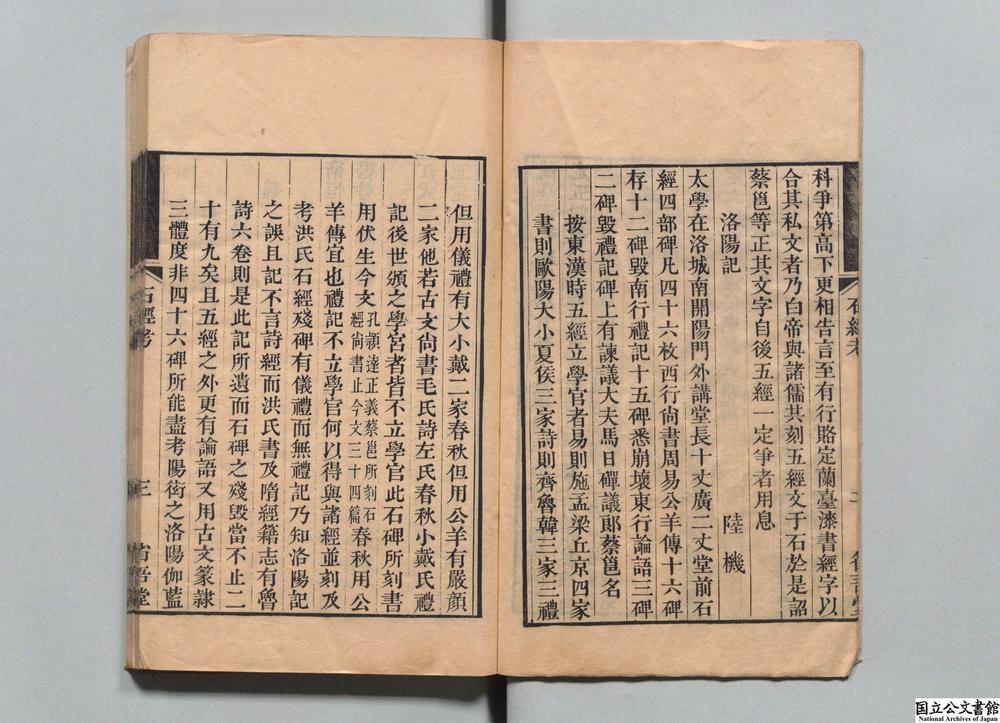 科爭第高下更相告言至有行賂定蘭臺漆書經字以
合其私文者乃白帝與諸儒其刻五經文于石於是詔
蔡邕等正其文字自後五經一定爭者用息
洛陽記 陸機
太學在洛城南開陽門外講堂長十丈廣二丈堂前石
經四部碑凡四十六枚西行尙書周易公羊傳十六碑
存十二碑毀南行禮記十五碑悉崩壞東行論語三碑
二碑毀禮記碑上有諫議大夫馬日磾議郎蔡邕名
按東漢時五經立學官者易則施孟梁丘京四家
書則歐陽大小夏侯三家詩則齊魯韓三家三禮
但用儀禮有大小戴二家春秋但用公羊有嚴顔
二家他若古文尙書毛氏詩左氏春秋小戴氏禮
記後世頒之學宮者皆不立學官此石碑所刻書
用伏生今文孔頴達正義蔡邕所刻石經尙書止今文三十四篇春秋用公
羊傳宜也禮記不立學官何以得與諸經並刻及
考洪氏石經殘碑有儀禮而無禮記乃知洛陽記
之誤且記不言詩經而洪氏書及隋經籍志有魯
詩六卷則是此記所遺而石碑之殘毀當不止二
十有九矣且五經之外更有論語又用古文篆隷
三體度非四十六碑所能盡考陽衒之洛陽伽藍
石經考
三
省吾堂
国立公文書館
National Archives of Japan